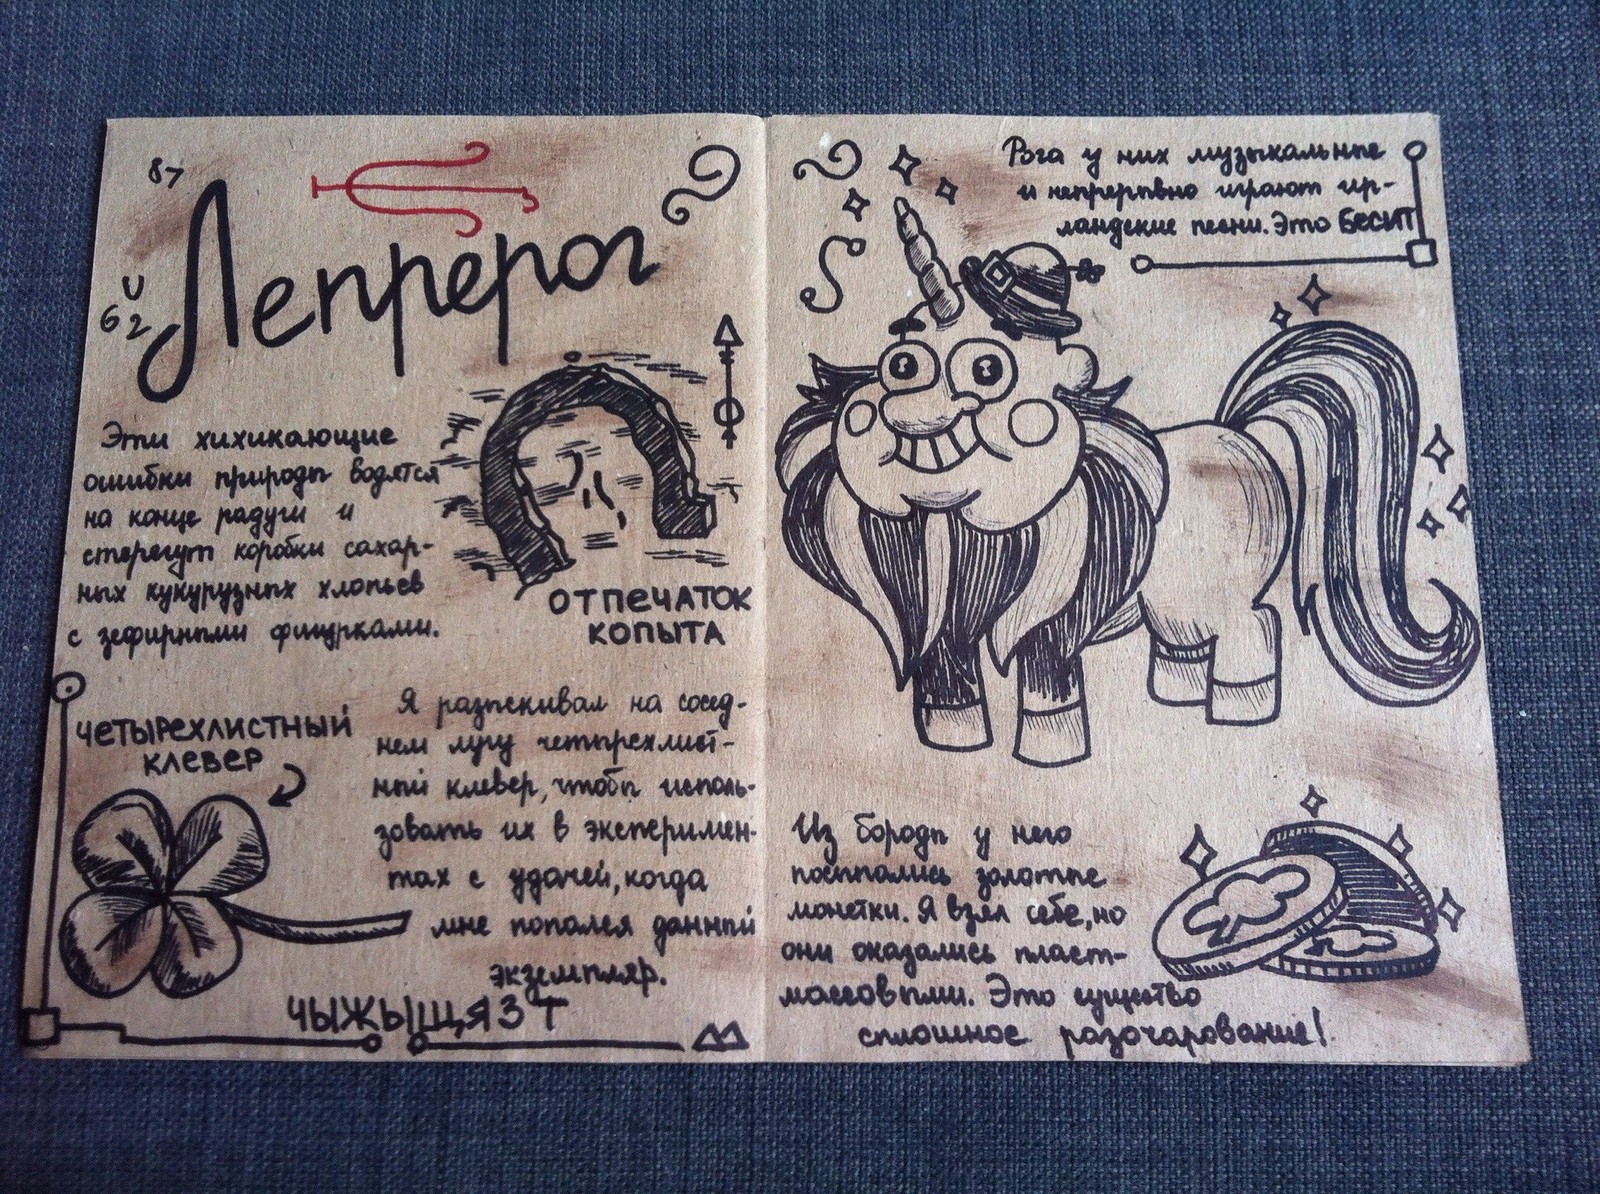 87
Лепрерог
U
62
Эти хихикающие
ошибки природы водятся
на конце радуги и
стерегут коробки сахар-
ных кукурузных хлопьев
с зефирными фигурками.
ОТПЕЧАТОК
КОПЫТА
ЧЕТЫРЕХЛИСТНЫЙ
КЛЕВЕР
Я разыскивал на сосед-
нем лугу четырехлист-
ный клевер, чтобы исполь-
зовать их в эксперимен-
тах с удачей, когда
мне попался данный
экземпляр.
ЧЫЖЫЩЯЗТ
Рога у них музыкальные
и непрерывно играют ир-
ландские песни. Это БЕСИТ
Из бороды у него
посыпались золотые
монетки. Я взял себе, но
они оказались пласт-
массовыми. Это существо
сплошное разочарование!